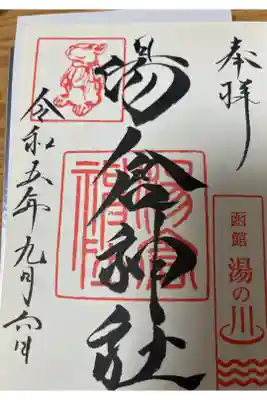 奉拝
函館 湯の川
湯倉神社
湯倉神社
令和五年九月